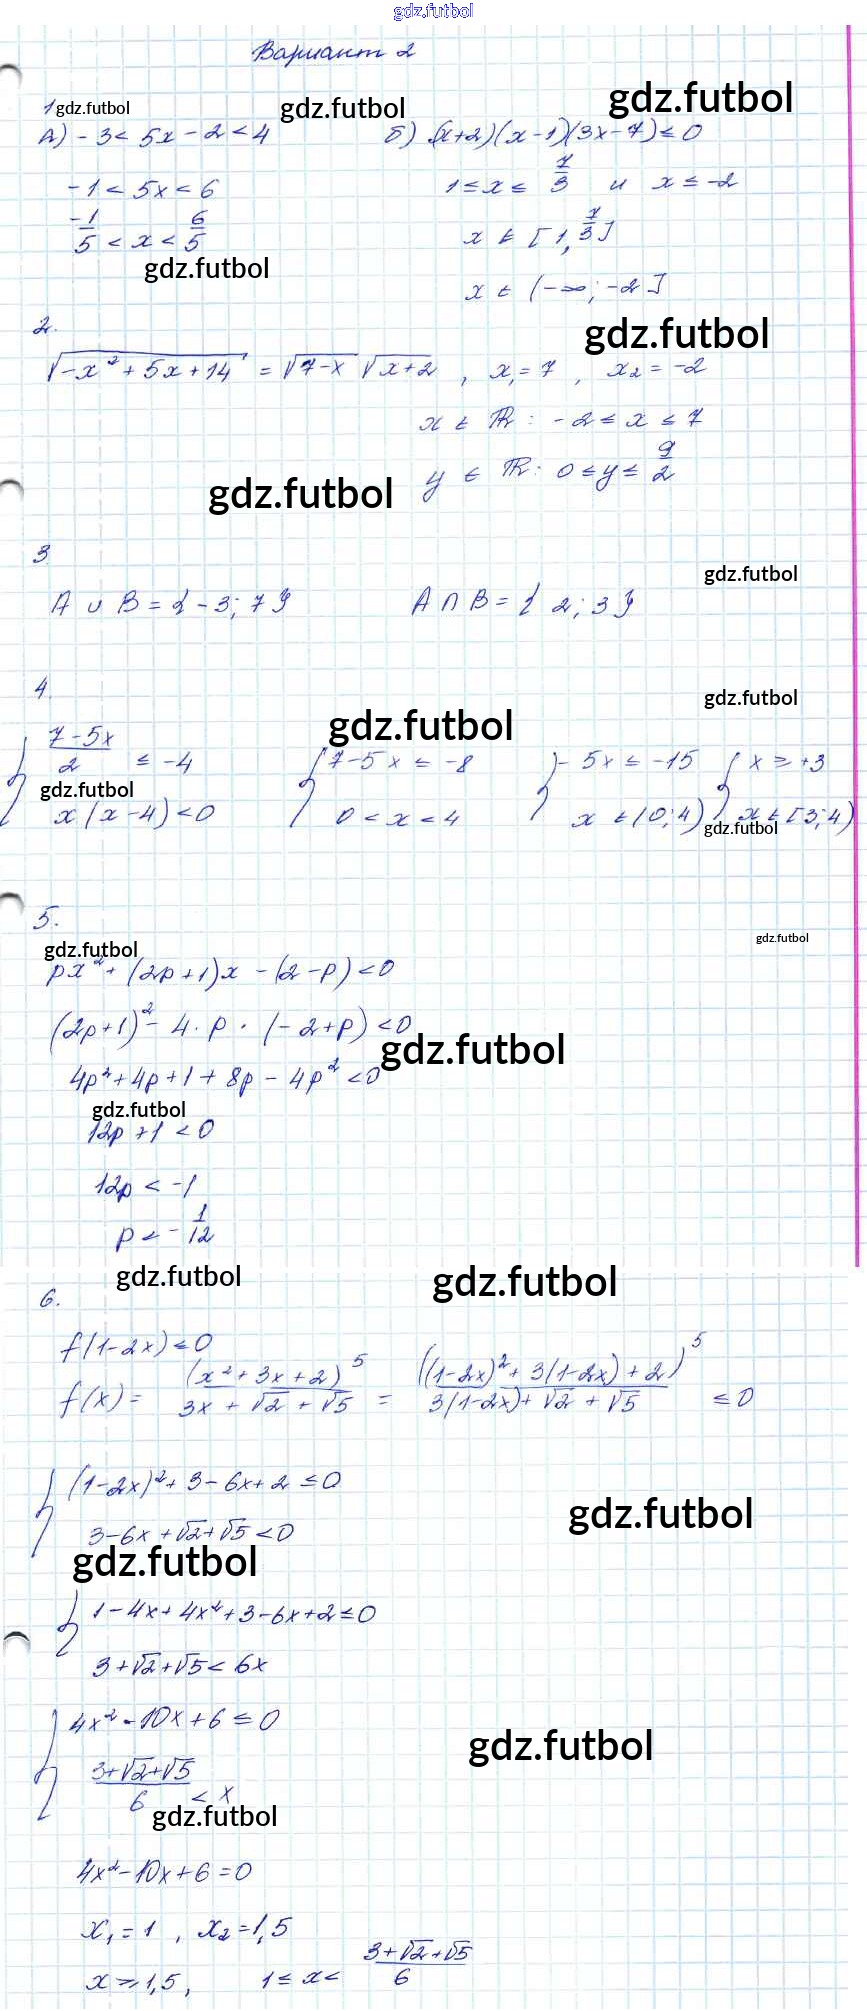 gdz.futbol
Вариант 2
1 gdz.futbol gdz.futbol gdz.futbol
А) -3 < 5x - 2 < 4 б) (x+2)(x-1)(3x-7) ≤ 0
-1 < 5x < 6 1 ≤ x ≤ 7/3 и x ≤ -2
-1/5 < x < 6/5 x ∈ [1, 7/3]
gdz.futbol
x ∈ (-∞; -2]
2.
gdz.futbol
√(-x² + 5x + 14) = √(7-x) √(x+2) , x₁ = 7 , x₂ = -2
x ∈ R : -2 ≤ x ≤ 7
y ∈ R : 0 ≤ y ≤ 9/2
gdz.futbol
3
gdz.futbol
A ∪ B = {-3; 7} A ∩ B = { 2; 3}
4.
gdz.futbol
gdz.futbol
{ (7-5x)/2 ≤ -4 { 7-5x ≤ -8 { -5x ≤ -15 { x ≥ +3
gdz.futbol
x(x-4) < 0 0 < x < 4 x ∈ (0; 4) x ∈ [3; 4)
gdz.futbol
5.
gdz.futbol
gdz.futbol
px² + (2p+1)x - (2-p) < 0
(2p+1)² - 4 · p · (-2+p) < 0
gdz.futbol
4p² + 4p + 1 + 8p - 4p² < 0
gdz.futbol
12p + 1 < 0
12p < -1
p < -1/12
gdz.futbol gdz.futbol
6.
f(1-2x) ≤ 0
f(x) = (x²+3x+2)⁵/(3x + √2 + √5) = ((1-2x)² + 3(1-2x) + 2)⁵/(3(1-2x) + √2 + √5) ≤ 0
{ (1-2x)² + 3 - 6x + 2 ≤ 0
gdz.futbol
3 - 6x + √2 + √5 < 0
gdz.futbol
{ 1 - 4x + 4x² + 3 - 6x + 2 ≤ 0
3 + √2 + √5 < 6x
{ 4x² - 10x + 6 ≤ 0
gdz.futbol
(3+√2+√5)/6 < x
gdz.futbol
4x² - 10x + 6 = 0
x₁ = 1 , x₂ = 1,5
x ≥ 1,5 , 1 ≤ x < (3+√2+√5)/6